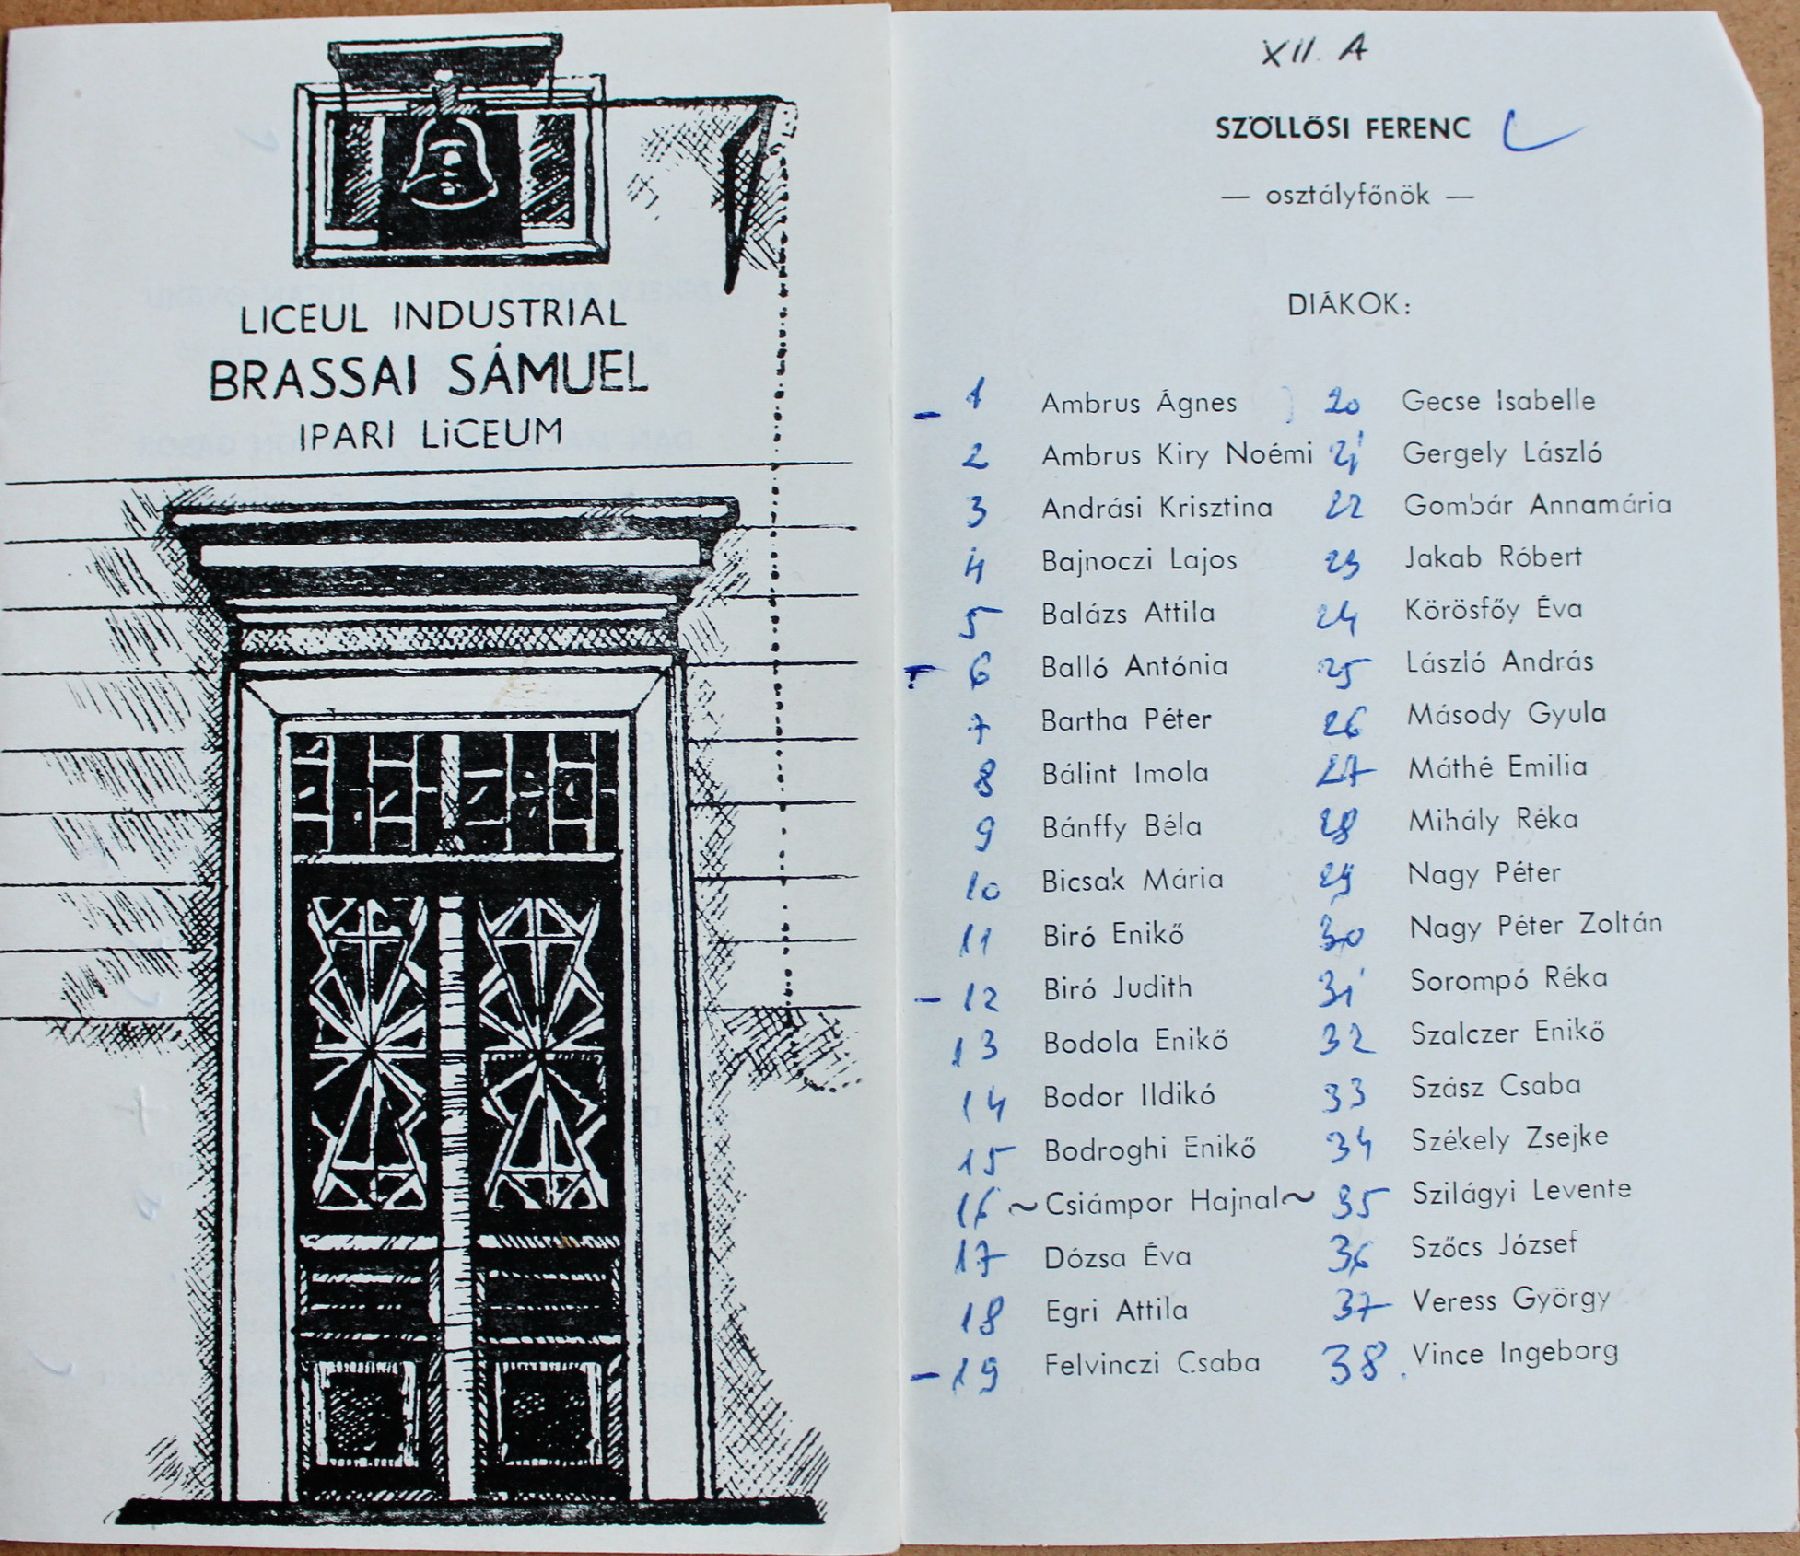 LICEUL INDUSTRIAL
BRASSAI SÁMUEL
IPARI LiCEUM
XII. A
SZÖLLŐSI FERENC
— osztályfőnök —
DIÁKOK:
1 Ambrus Ágnes
2 Ambrus Kiry Noémi
3 Andrási Krisztina
4 Bajnoczi Lajos
5 Balázs Attila
6 Balló Antónia
7 Bartha Péter
8 Bálint Imola
9 Bánffy Béla
10 Bicsak Mária
11 Biró Enikő
12 Biró Judith
13 Bodola Enikő
14 Bodor Ildikó
15 Bodroghi Enikő
16 ~ Csiámpor Hajnal ~
17 Dózsa Éva
18 Egri Attila
19 Felvinczi Csaba
20 Gecse Isabelle
21 Gergely László
22 Gombár Annamária
23 Jakab Róbert
24 Körösfőy Éva
25 László András
26 Másody Gyula
27 Máthé Emilia
28 Mihály Réka
29 Nagy Péter
30 Nagy Péter Zoltán
31 Sorompó Réka
32 Szalczer Enikő
33 Szász Csaba
34 Székely Zsejke
35 Szilágyi Levente
36 Szőcs József
37 Veress György
38. Vince Ingeborg